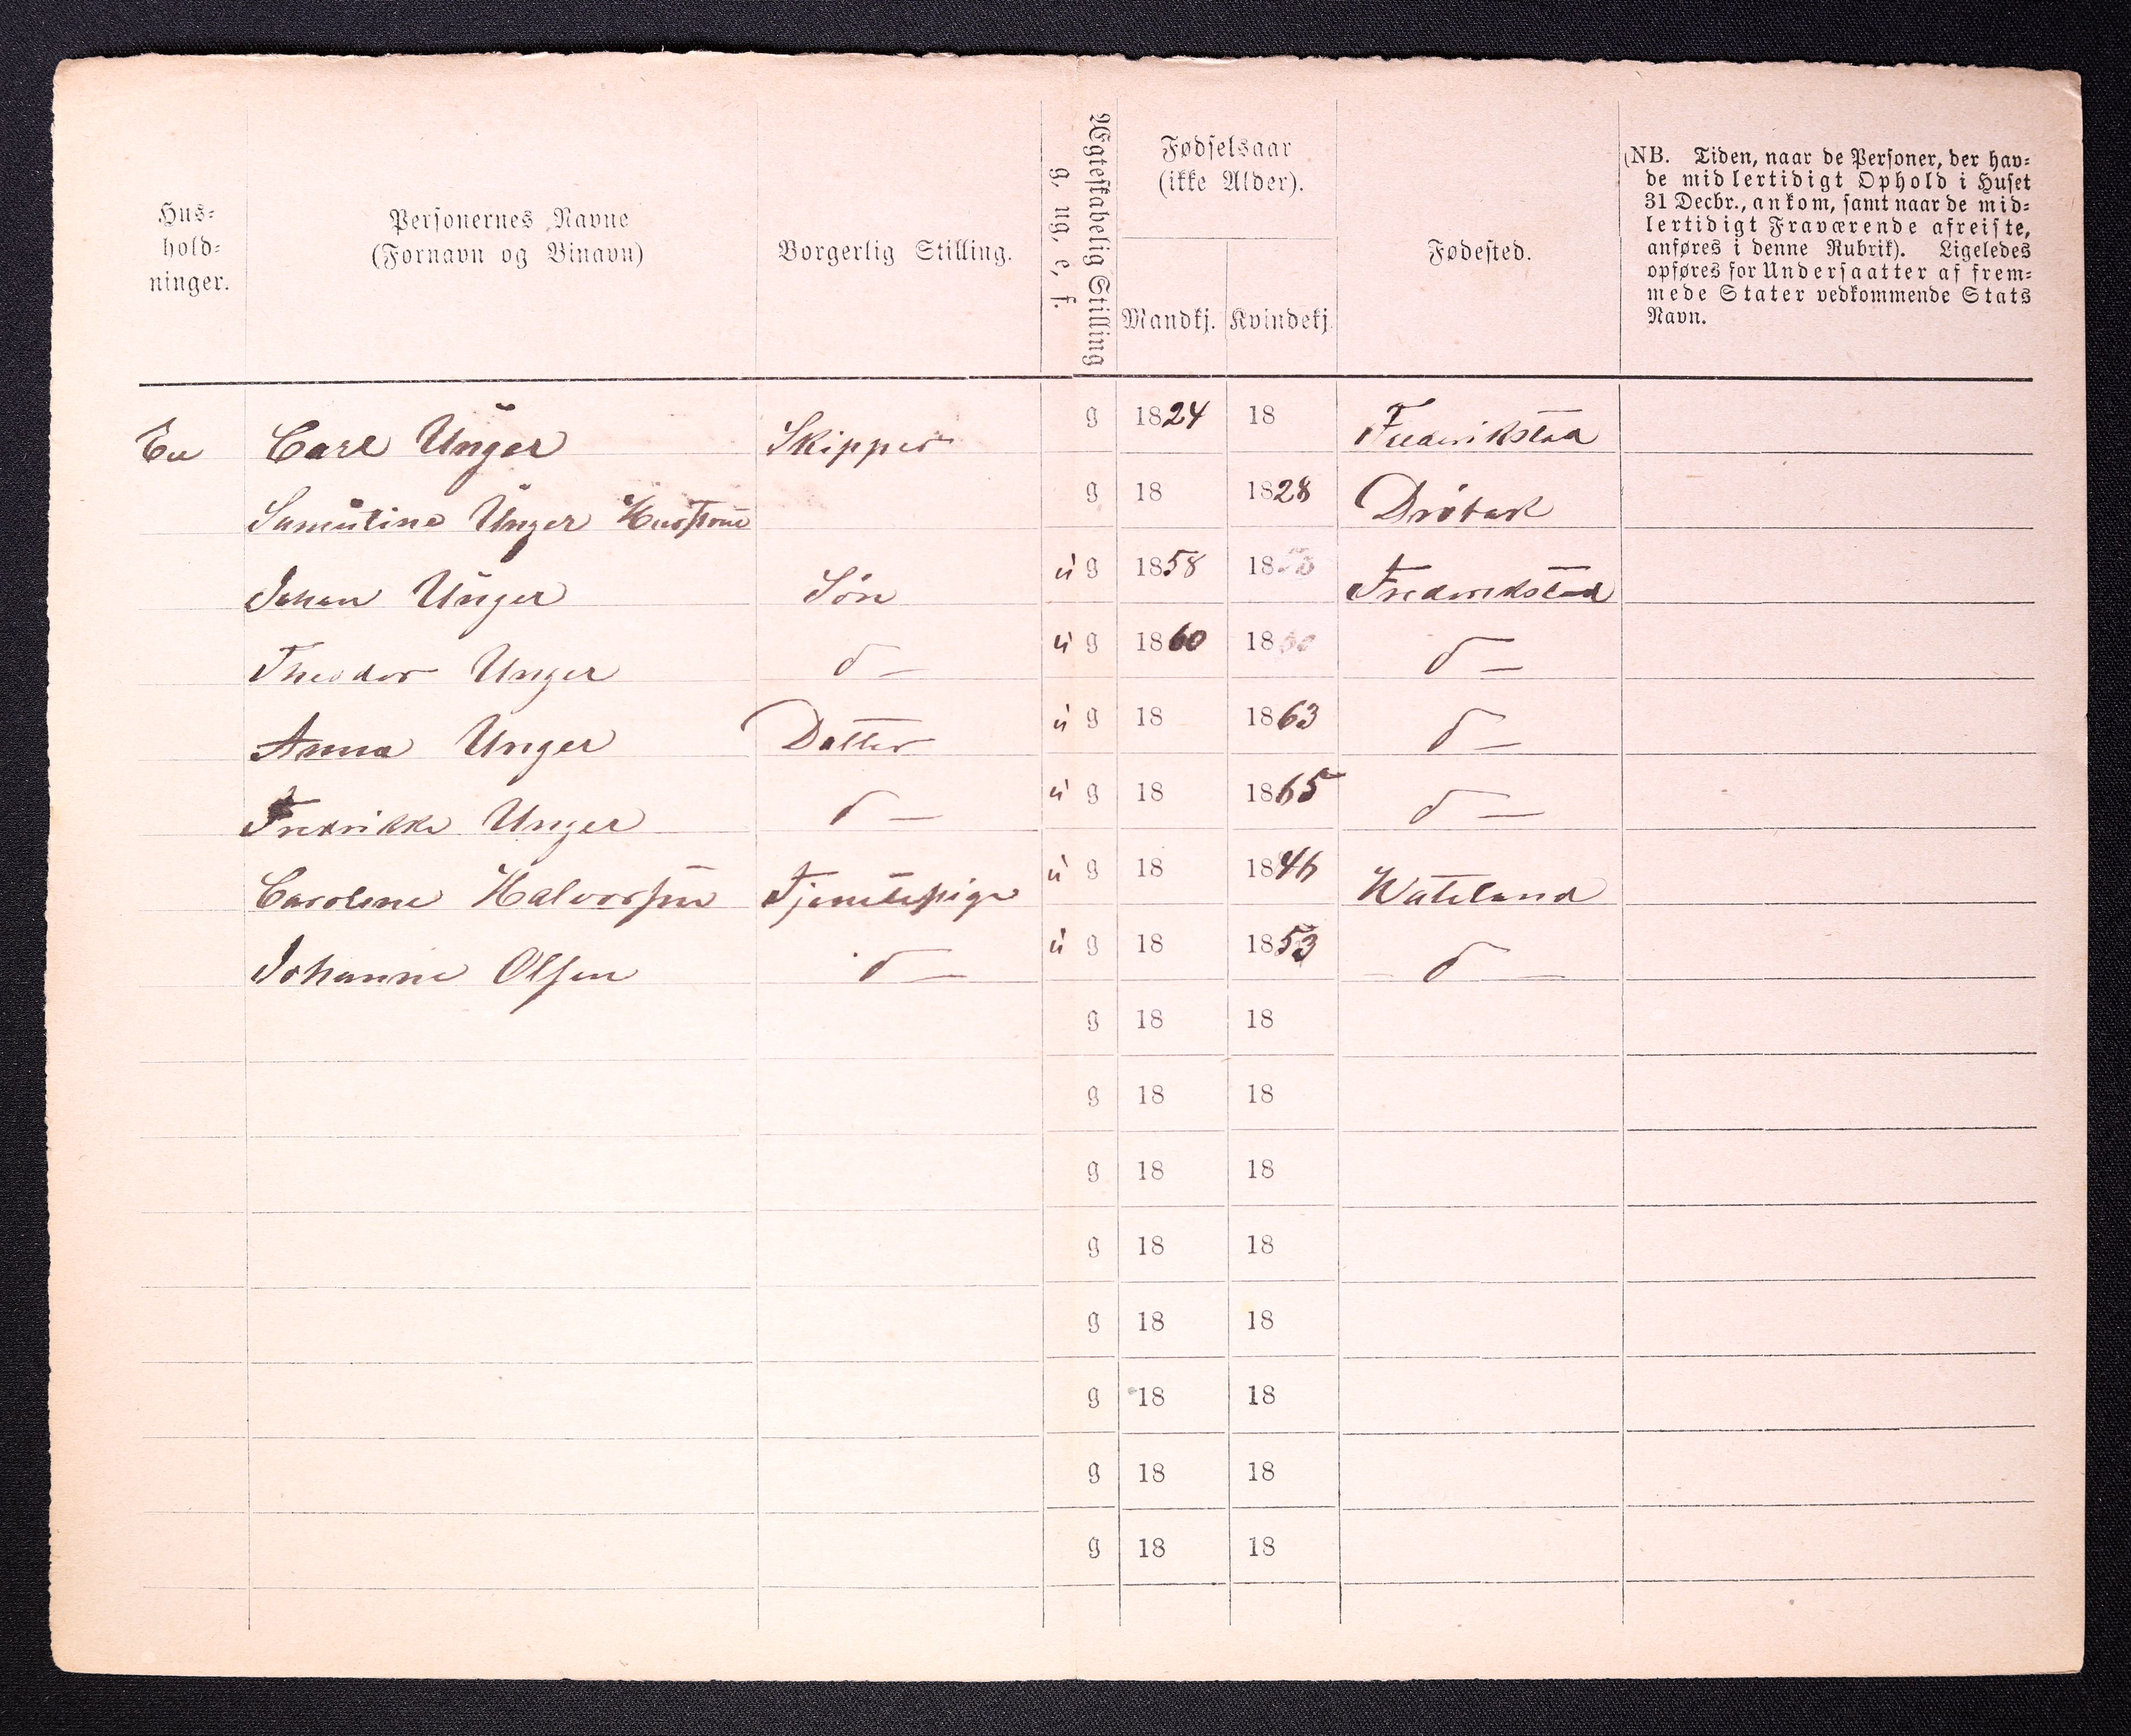 Hus-
hold-
ninger.
Personernes Navne
(Fornavn og Binavn)
Borgerlig Stilling.
Ægteskabelig Stilling
g, ug, e, f.
Fødselsaar
(ikke Alder).
Mandkj. Kvindekj.
Fødested.
(NB. Tiden, naar de Personer, der hav-
de midlertidigt Ophold i Huset
31 Decbr., ankom, samt naar de mid-
lertidigt Fraværende afreiste,
anføres i denne Rubrik). Ligeledes
opføres for Undersaatter af frem-
mede Stater vedkommende Stats
Navn.
En Carl Unger Skipper g 1824 18 Frederikstad
Samuline Unger Hustrue g 18 1828 Dröbak
Johan Unger Sön u g 1858 18 Frederikstad
Theodor Unger d — u g 1860 18 d —
Anna Unger Datter u g 18 1863 d —
Fredrikke Unger d — u g 18 1865 d —
Carolene Halvorsen Tjenestepige u g 18 1846 Wateland
Johanne Olsen d — u g 18 1853 d —
g 18 18
g 18 18
g 18 18
g 18 18
g 18 18
g 18 18
g 18 18
g 18 18